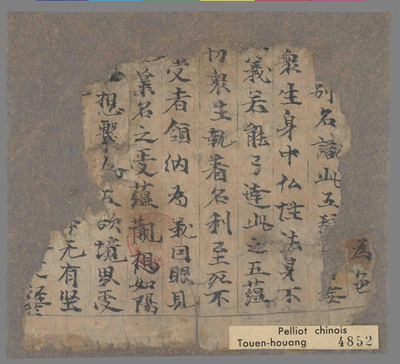 為色
別名識此五
衆生身中仏性法身不
義若能了達此之五蘊
切衆生執着名利至死不
受者領納為義因眼見
業名之受蘊觀想如陽
想聚欲境界受
无有堅
Pelliot chinois
Touen-houang 4852